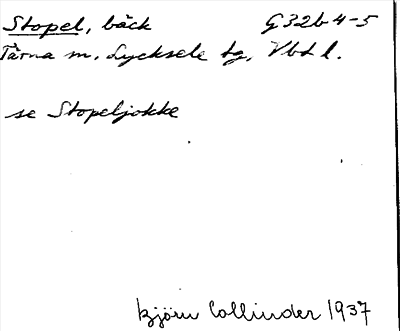 Stopel, bäck G32b4-5
Tärna sn, Lycksele tg, Vbtl l.
se Stopeljokke
Björn Collinder 1937